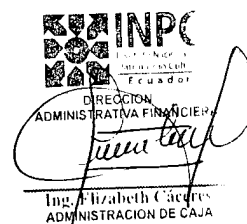 INPC
Ecuador
DIRECCION
ADMINISTRATIVA FINANCIERA
Ing. Elizabeth Cáceres
ADMINISTRACION DE CAJA